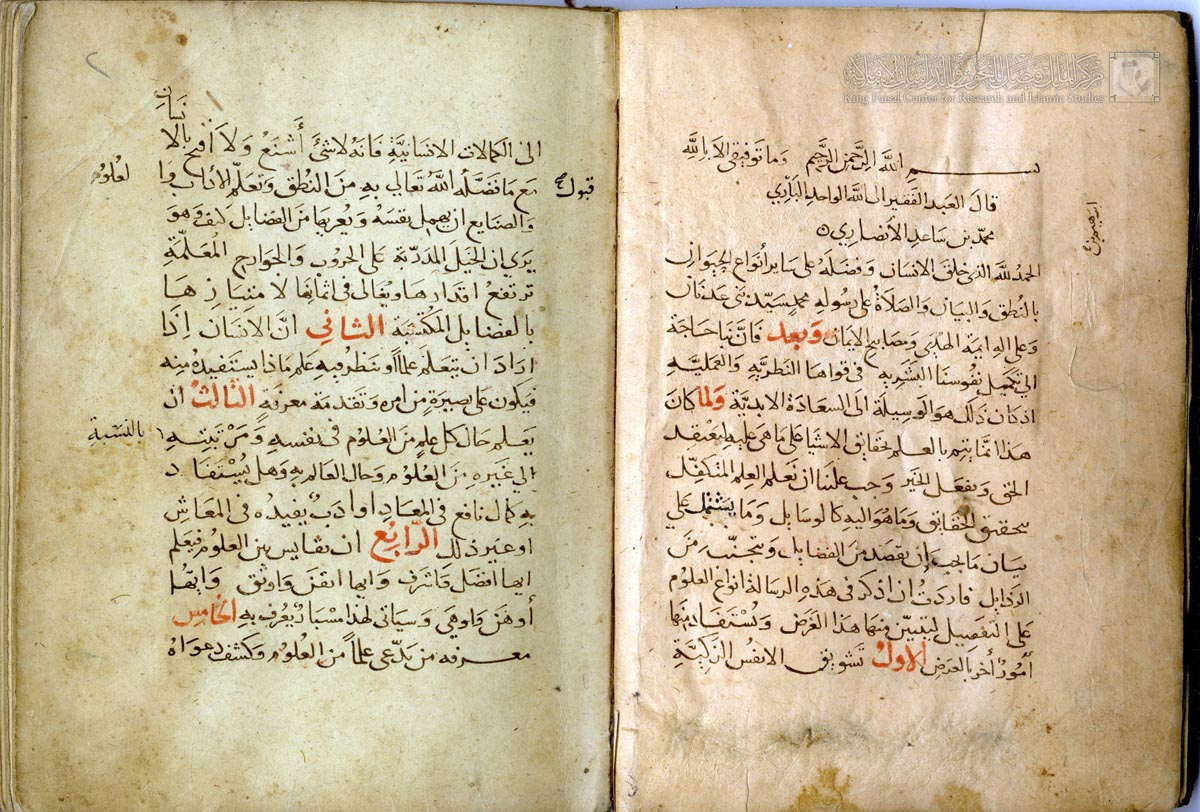 مركز الملك فيصل للبحوث والدراسات الإسلامية
King Faisal Center for Research and Islamic Studies
بسم الله الرحمن الرحيم وما توفيقي الا بالله
قال العبد الفقير الى الله الواحد الباري
محمد بن ساعد الأنصاري
الحمد لله الذي خلق الانسان وفضله على ساير أنواع الحيوان
بالنطق والبيان والصلاة على رسوله محمد سيد بني عدنان
وعلى اله ايمة الهدى ومصابيح الايمان وبعد فان بنا حاجة
الى تكميل نفوسنا البشريه في قواها النظريه والعمليه
اذ كان ذلك هو الوسيلة الى السعادة الابدية ولما كان
هذا انما يتم بالعلم بحقايق الاشيا على ما هي عليه ليعتقد
الحق ويفعل الخير وجب علينا ان نعلم العلم المتكفل
بتحقيق الحقايق وما هو اليه كالوسايل وما يشتمل على
بيان ما يجب إن يقصد من الفضايل ويتجنب من
الرذايل فاردت ان اذكر في هذه الرسالة انواع العلوم
على التفصيل ليتبين منها هذا الغرض وتستفاد منها
أمور أخر بالعرض الاول تشويق الانفس الزكية
الى الكمالات الانسانية فانه لا شئ أشنع ولا أقبح بالا
نسان
مع ما فضله الله تعالى به من النطق وتعلم الآداب وا
لعلوم
قبول
والصنايع ان يهمل نفسه ويعريها من الفضايل كيف وهو
يرى ان الخيل المدربة على الحروب والجوارح المعلمة
ترتفع اقدارها ويغالى في اثمانها لامتيازها
بالفضايل المكتسبة الثاني ان الانسان اذا
اراد ان يتعلم علما او ينظر فيه علم ماذا يستفيده منه
فيكون على بصيرة من امره وتقدمة معرفة الثالث ان
يعلم حال كل علم من العلوم في نفسه ومرتبته
بالنسبة
الى غيره من العلوم وحال العالم به وهل يستفاد
به كمال نافع في المعاد او أدب يفيده في المعاش
او غير ذلك الرابع ان يقايس بين العلوم فيعلم
ايها افضل واشرف وايها اتقن واوثق وايها
أوهن واوهى وسياتي لهذا مسبار يعرف به الخامس
معرفه من يدعي علما من العلوم وكشف دعواه